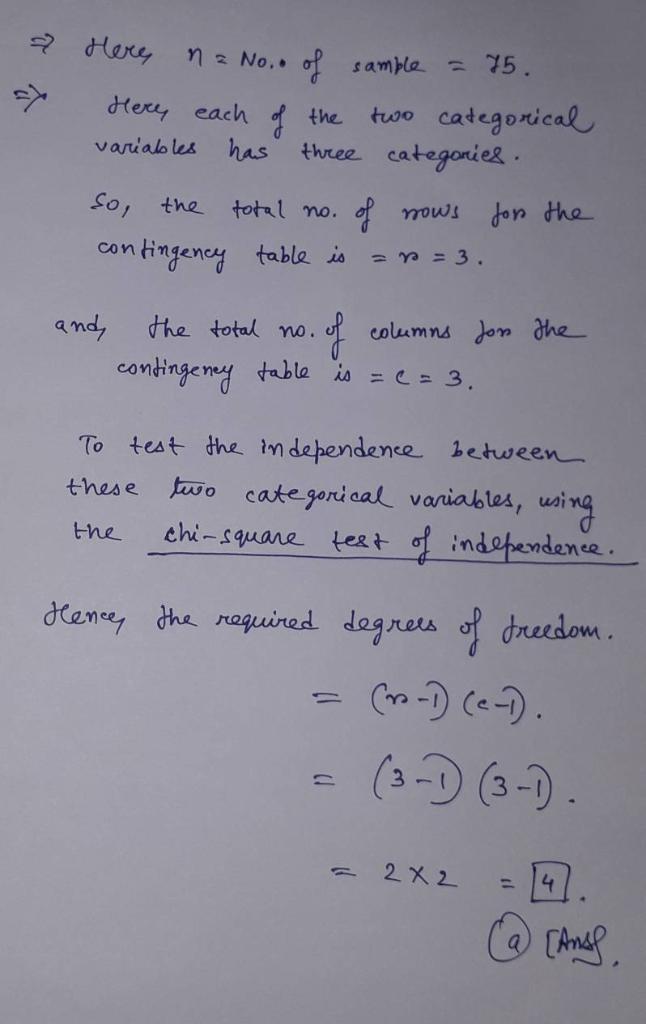 ⇒ Here, n = No.. of sample = 75.
⇒ Here, each of the two categorical
variables has three categories.
So, the total no. of rows for the
contingency table is = r = 3.
and, the total no. of columns for the
contingency table is = c = 3.
To test the independence between
these two categorical variables, using
the chi-square test of independence.
Hence, the required degrees of freedom.
= (r-1) (c-1).
= (3-1) (3-1).
= 2 x 2 = 4.
(a) [Ans].